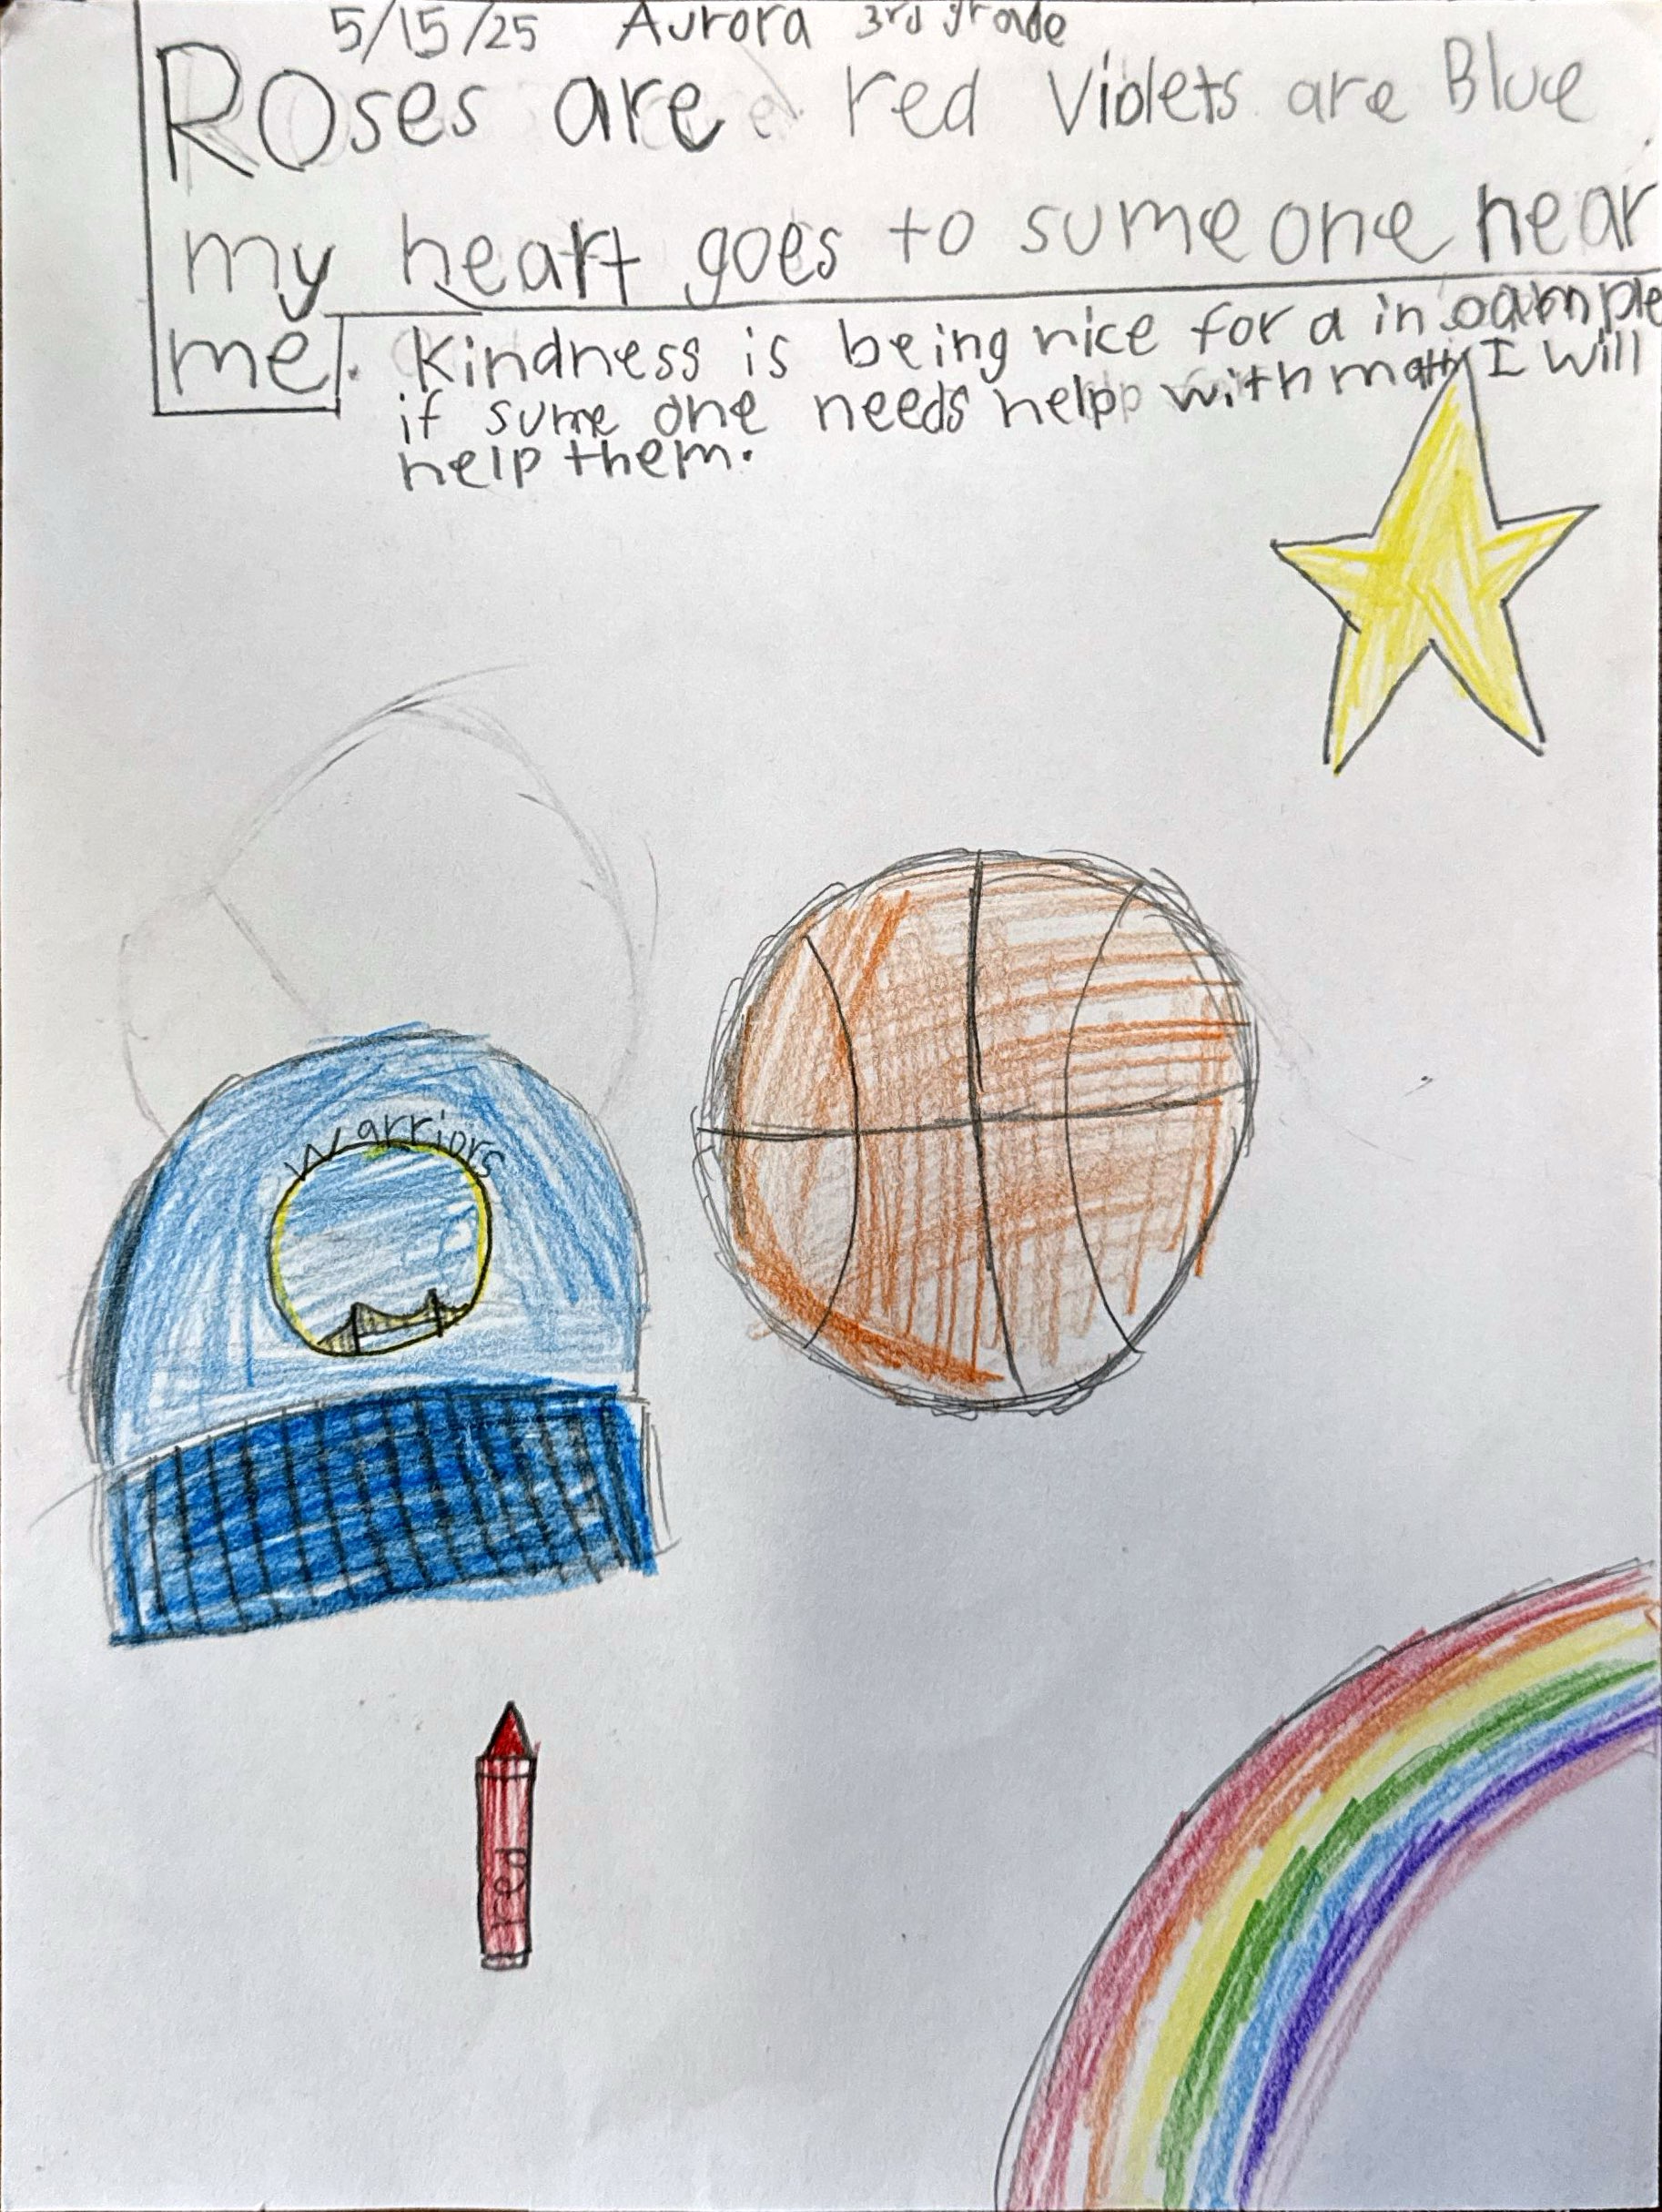 5/15/25 Aurora 3rd grade
Roses are red Violets are Blue
my heart goes to sumeone near
me. Kindness is being nice for a in
if sume one needs help with math I will
help them.
Warriors
red